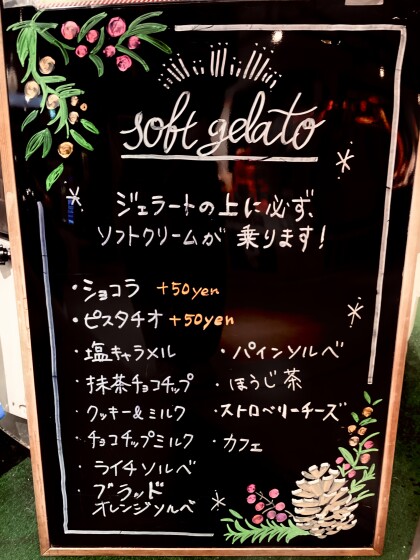 soft gelato
ジェラートの上に必ず、
ソフトクリームが 乗ります!
・ショコラ +50yen
・ピスタチオ +50yen
・塩キャラメル
・抹茶チョコチップ
・クッキー&ミルク
・チョコチップミルク
・ライチソルベ
・ブラッド
オレンジソルベ
・パインソルベ
・ほうじ茶
・ストロベリーチーズ
・カフェ